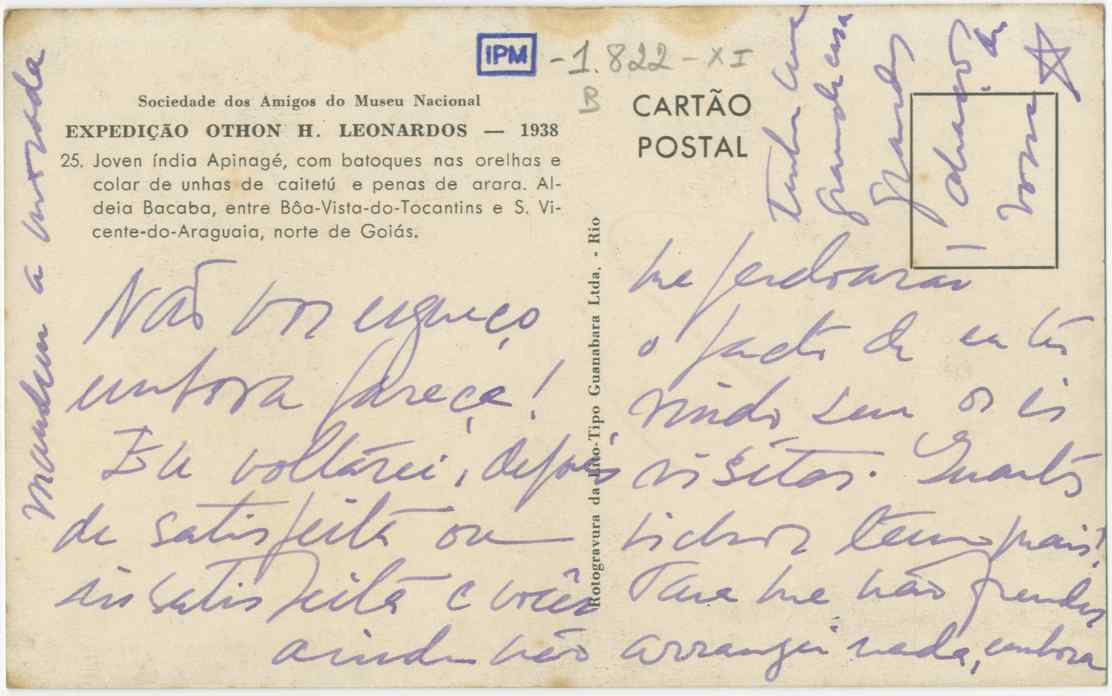 IPM - 1.822 - XI
B
Sociedade dos Amigos do Museu Nacional
EXPEDIÇÃO OTHON H. LEONARDOS — 1938
25. Joven índia Apinagé, com batoques nas orelhas e
colar de unhas de caitetú e penas de arara. Al-
deia Bacaba, entre Bôa-Vista-do-Tocantins e S. Vi-
cente-do-Araguaia, norte de Goiás.
CARTÃO
POSTAL
Rotogravura da Lito-Tipo Guanabara Ltda. - Rio
Não vos esqueço
embora pareça!
Eu voltarei, depois
de satisfeita ou
insatisfeita e vocês
me perdoarão
o facto de eu ter
vindo sem os
visitar. Quantos
bichos tem o pais!
Para me não
ainda não arranjei nada, embora
tenha uma
grande casa
grandes
de
Mandem a morada